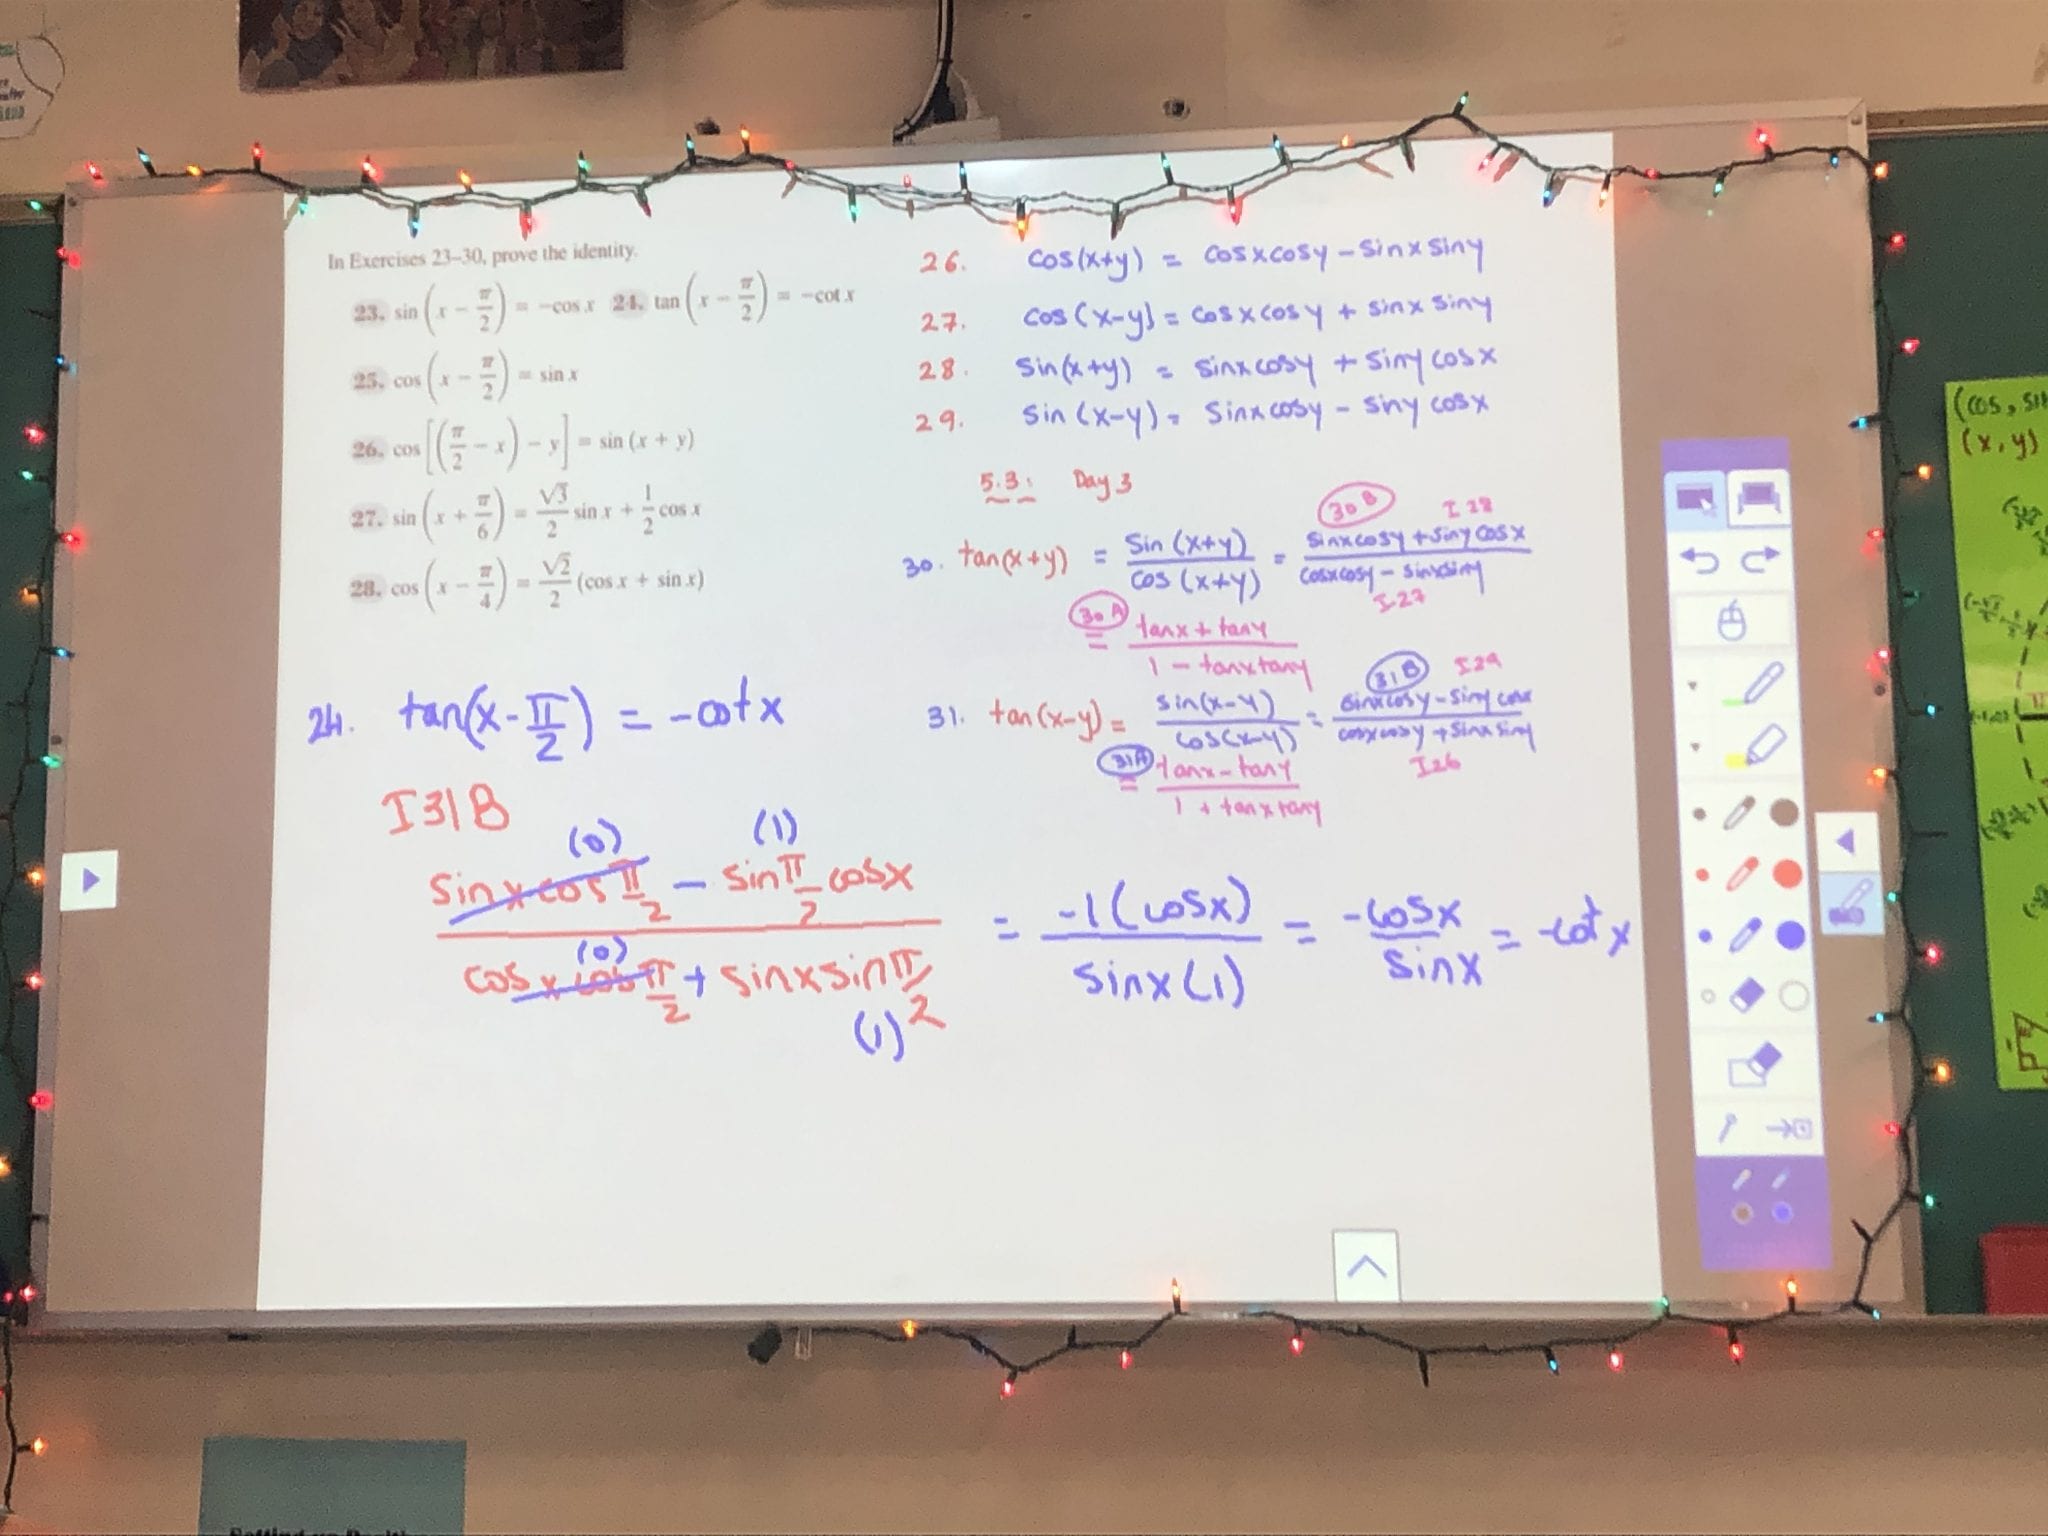 In Exercises 23–30, prove the identity.
23. sin(x − π/2) = −cos x 24. tan(x − π/2) = −cot x
25. cos(x − π/2) = sin x
26. cos[(π/2 − x) − y] = sin (x + y)
27. sin(x + π/6) = √3/2 sin x + 1/2 cos x
28. cos(x − π/4) = √2/2 (cos x + sin x)
26. cos(x+y) = cosxcosy − sinxsiny
27. cos(x−y) = cosxcosy + sinxsiny
28. sin(x+y) = sinxcosy + sinycosx
29. sin(x−y) = sinxcosy − sinycosx
5.3: Day 3
30B I28
30. tan(x+y) = sin(x+y)/cos(x+y) = (sinxcosy + sinycosx)/(cosxcosy − sinxsiny)
I27
30A = (tanx + tany)/(1 − tanxtany)
31B I29
31. tan(x−y) = sin(x−y)/cos(x−y) = (sinxcosy − sinycosx)/(cosxcosy + sinxsiny)
I26
31A = (tanx − tany)/(1 + tanxtany)
24. tan(x − π/2) = −cotx
I31B
(0) (1)
(sinxcosπ/2 − sinπ/2cosx)/(cosxcosπ/2 + sinxsinπ/2) = −1(cosx)/sinx(1) = −cosx/sinx = −cotx
(0)
(1)
(cos, sin
(x, y)